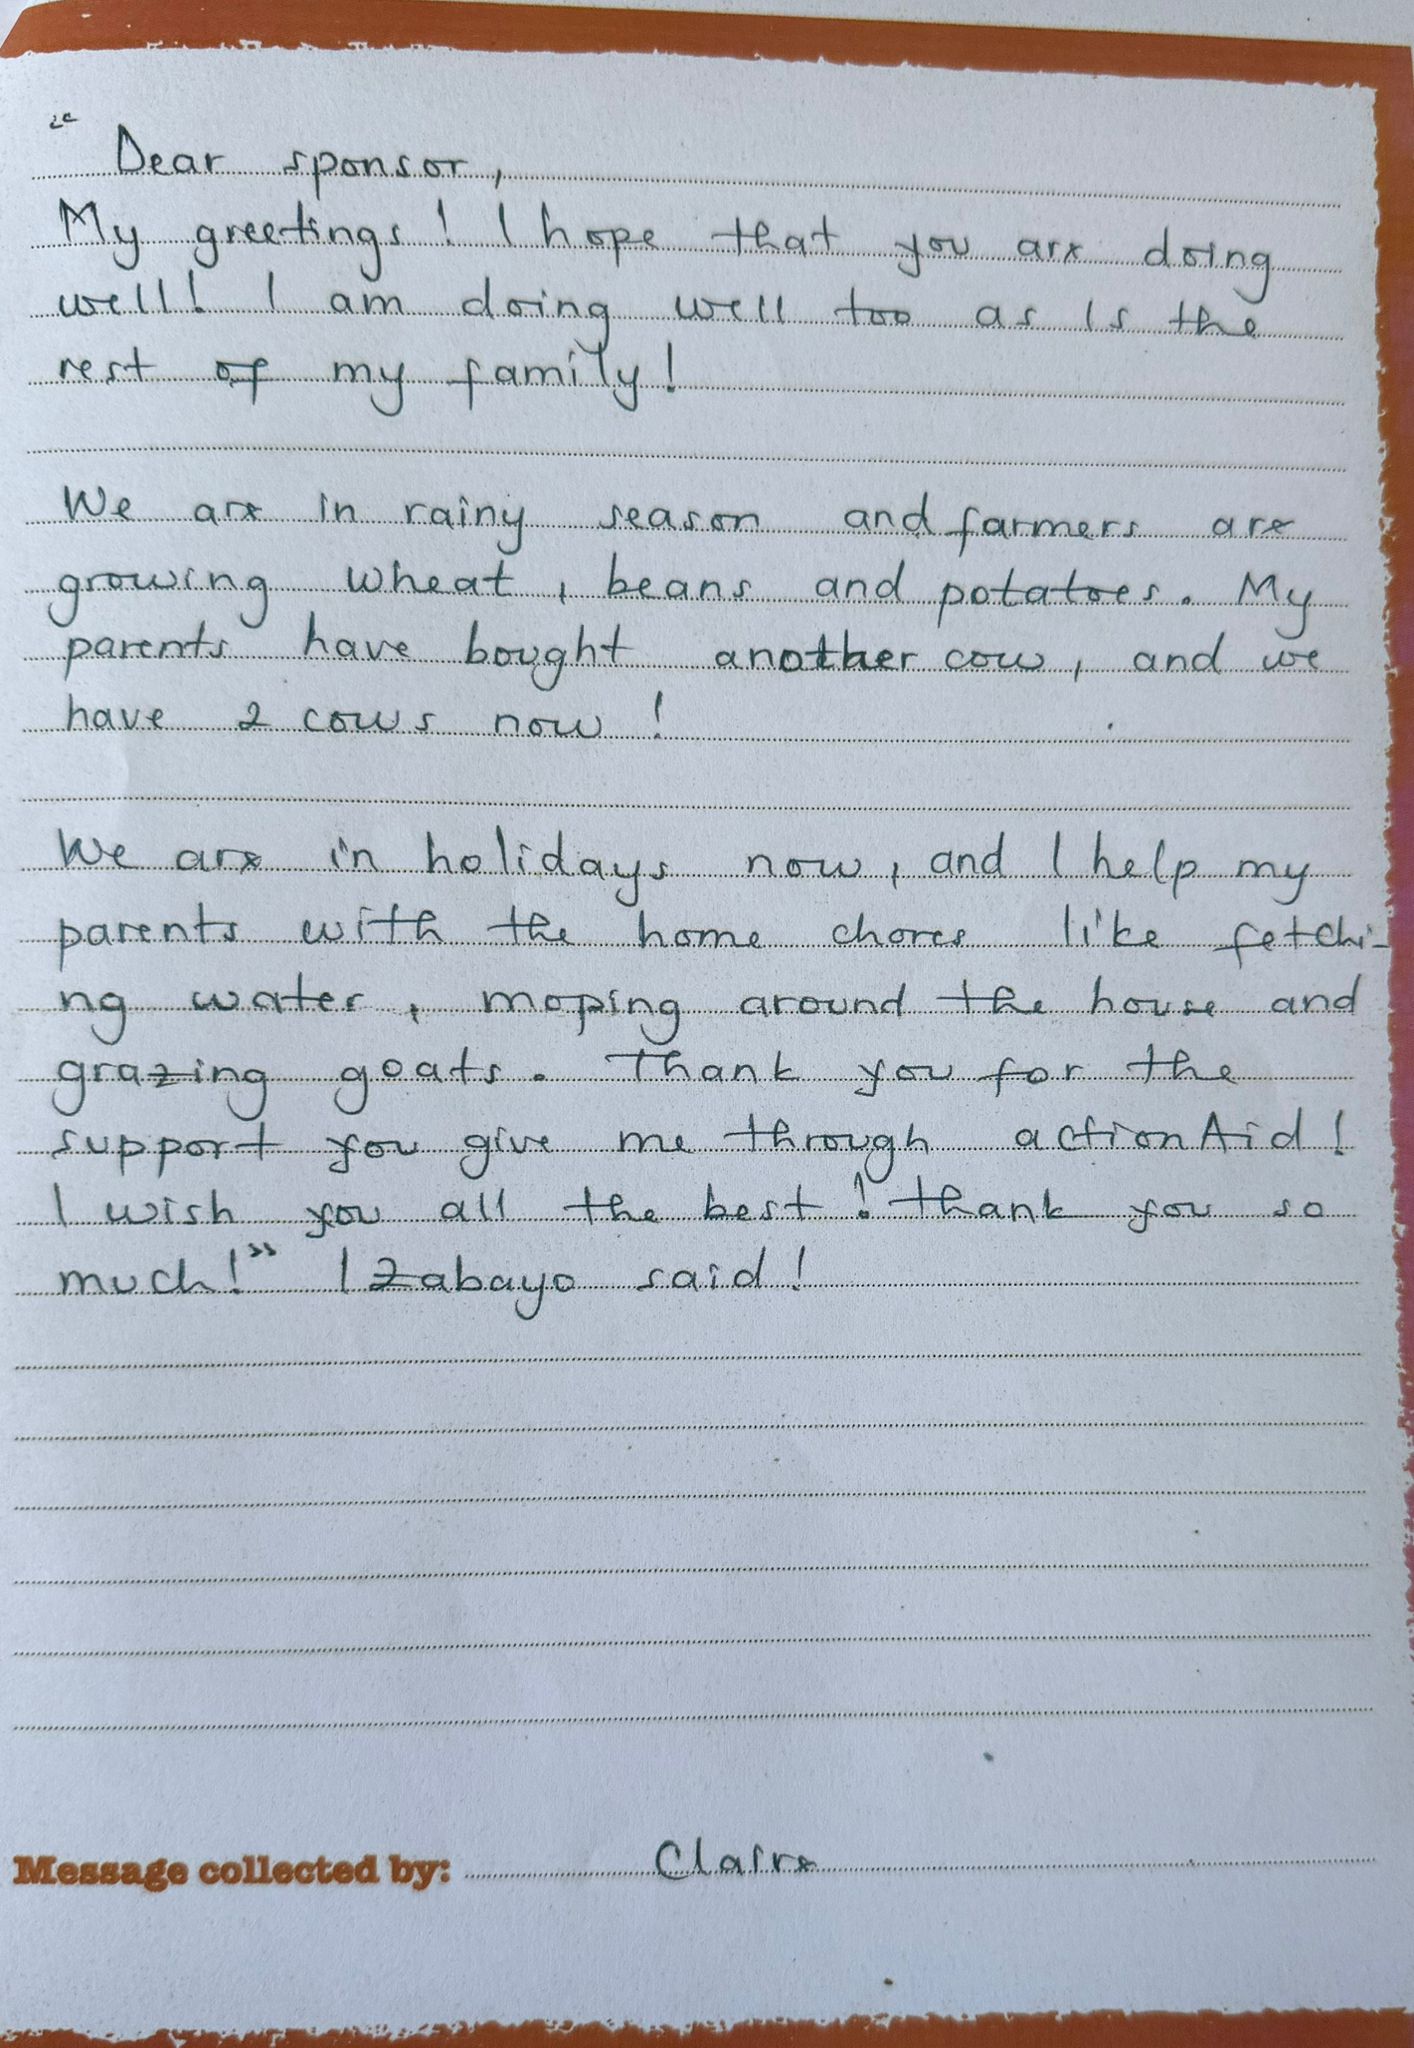 “Dear sponsor,
My greetings! I hope that you are doing
well! I am doing well too as is the
rest of my family!
We are in rainy season and farmers are
growing wheat, beans and potatoes. My
parents have bought another cow, and we
have 2 cows now!
We are in holidays now, and I help my
parents with the home chores like fetchi-
ng water, moping around the house and
grazing goats. Thank you for the
support you give me through actionAid!
I wish you all the best! Thank you so
much!” Izabayo said!
Message collected by: Claire